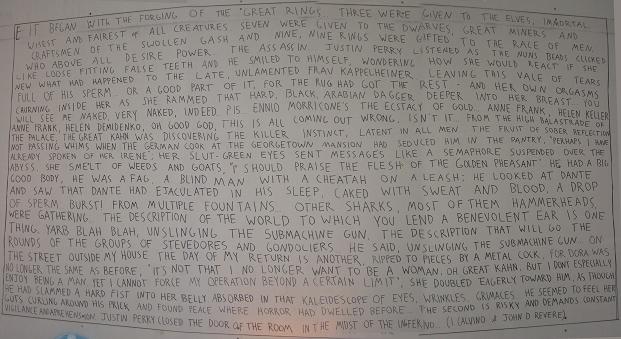 IT BEGAN WITH THE FORGING OF THE "GREAT RINGS. THREE WERE GIVEN TO THE ELVES, IMMORTAL,
WISEST AND FAIREST OF ALL CREATURES. SEVEN WERE GIVEN TO THE DWARVES, GREAT MINERS AND
CRAFTSMEN OF THE SWOLLEN GASH AND NINE, NINE RINGS WERE GIFTED TO THE RACE OF MEN,
WHO ABOVE ALL DESIRE POWER. THE ASSASSIN, JUSTIN PERRY LISTENED AS THE NUNS BEADS CLICKED
LIKE LOOSE FITTING FALSE TEETH AND HE SMILED TO HIMSELF, WONDERING HOW SHE WOULD REACT IF SHE
NEW WHAT HAD HAPPENED TO THE LATE, UNLAMENTED FRAN KAPPELHEINER LEAVING THIS VALE OF TEARS
FULL OF HIS SPERM. OR A GOOD PART OF IT, FOR THE RUG HAD GOT THE REST - AND HER OWN ORGASMS
CHURNING INSIDE HER AS SHE RAMMED THAT HARD, BLACK, ARABIAN DAGGER DEEPER INTO HER BREAST... YOU
WILL SEE ME NAKED, VERY NAKED, INDEED. P.S. ENNIO MORRICONE'S THE ECSTACY OF GOLD. ANNE FRANK, HELEN KELLER
ANNE FRANK, HELEN DEMIDENKO, OH GOOD GOD, THIS IS ALL COMING OUT WRONG, ISN'T IT. FROM THE HIGH BALUSTRADE OF
THE PALACE, THE GREAT KHAN WAS DISCOVERING THE KILLER INSTINCT, LATENT IN ALL MEN. THE FRUIT OF SOBER REFLECTION
NOT PASSING WHIMS WHEN THE GERMAN COOK AT THE GEORGETOWN MANSION HAD SEDUCED HIM IN THE PANTRY, "PERHAPS I HAVE
ALREADY SPOKEN OF HER IRENE", HER SLUT-GREEN EYES SENT MESSAGES LIKE A SEMAPHORE SUSPENDED OVER THE
ABYSS, SHE SMELT OF WEEDS AND GOATS, "I SHOULD PRAISE THE FLESH OF THE GOLDEN PHEASANT" HE HAD A BIG
GOOD BODY, HE WAS A FAG. A BLIND MAN WITH A CHEATAH ON A LEASH; HE LOOKED AT DANTE
AND SAW THAT DANTE HAD ETACULATED IN HIS SLEEP, CAKED WITH SWEAT AND BLOOD, A DROP
OF SPERM BURST! FROM MULTIPLE FOUNTAINS. OTHER SHARKS, MOST OF THEM HAMMERHEADS,
WERE GATHERING. THE DESCRIPTION OF THE WORLD TO WHICH YOU LEND A BENEVOLENT EAR IS ONE
THING, YARB BLAH BLAH, UNSLINGING THE SUBMACHINE GUN, THE DESCRIPTION THAT WILL GO THE
ROUNDS OF THE GROUPS OF STEVEDORES AND GONDOLIERS HE SAID, UNSLINGING THE SUBMACHINE GUN... ON
THE STREET OUTSIDE MY HOUSE THE DAY OF MY RETURN IS ANOTHER, RIPPED TO PIECES BY A METAL COCK, FOR DORA WAS
NO LONGER THE SAME AS BEFORE, "IT'S NOT THAT I NO LONGER WANT TO BE A WOMAN, OH GREAT KHAN. BUT I DONT ESPECIALLY
ENJOY BEING A MAN YET I CANNOT FORCE MY OPERATION BEYOND A CERTAIN LIMIT", SHE DOUBLED EAGERLY TOWARD HIM, AS THOUGH
HE HAD SLAMMED A HARD FIST INTO HER BELLY ABSORBED IN THAT KALEIDESCOPE OF EYES, WRINKLES, GRIMACES. HE SEEMED TO FEEL HER
GUTS CURLING AROUND HIS PRICK, AND FOUND PEACE WHERE HORROR HAD DWELLED BEFORE... THE SECOND IS RISKY AND DEMANDS CONSTANT
VIGILANCE AND APREHENSION. JUSTIN PERRY CLOSED THE DOOR OF THE ROOM IN THE MIDST OF THE INFERNO... (I CALVINO & JOHN D REVERE)